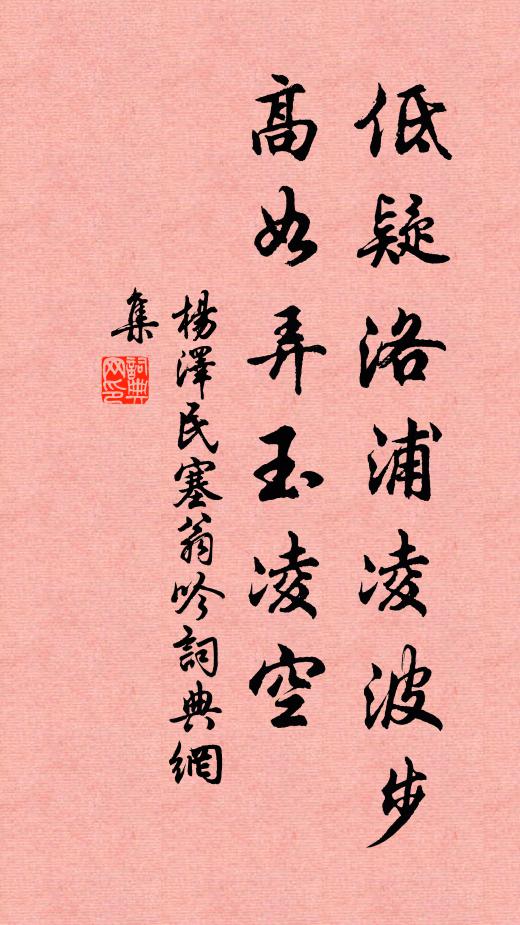 低疑洛浦凌波步
高如弄玉凌空
楊澤民塞翁吟詞典網
集
詞典
网印